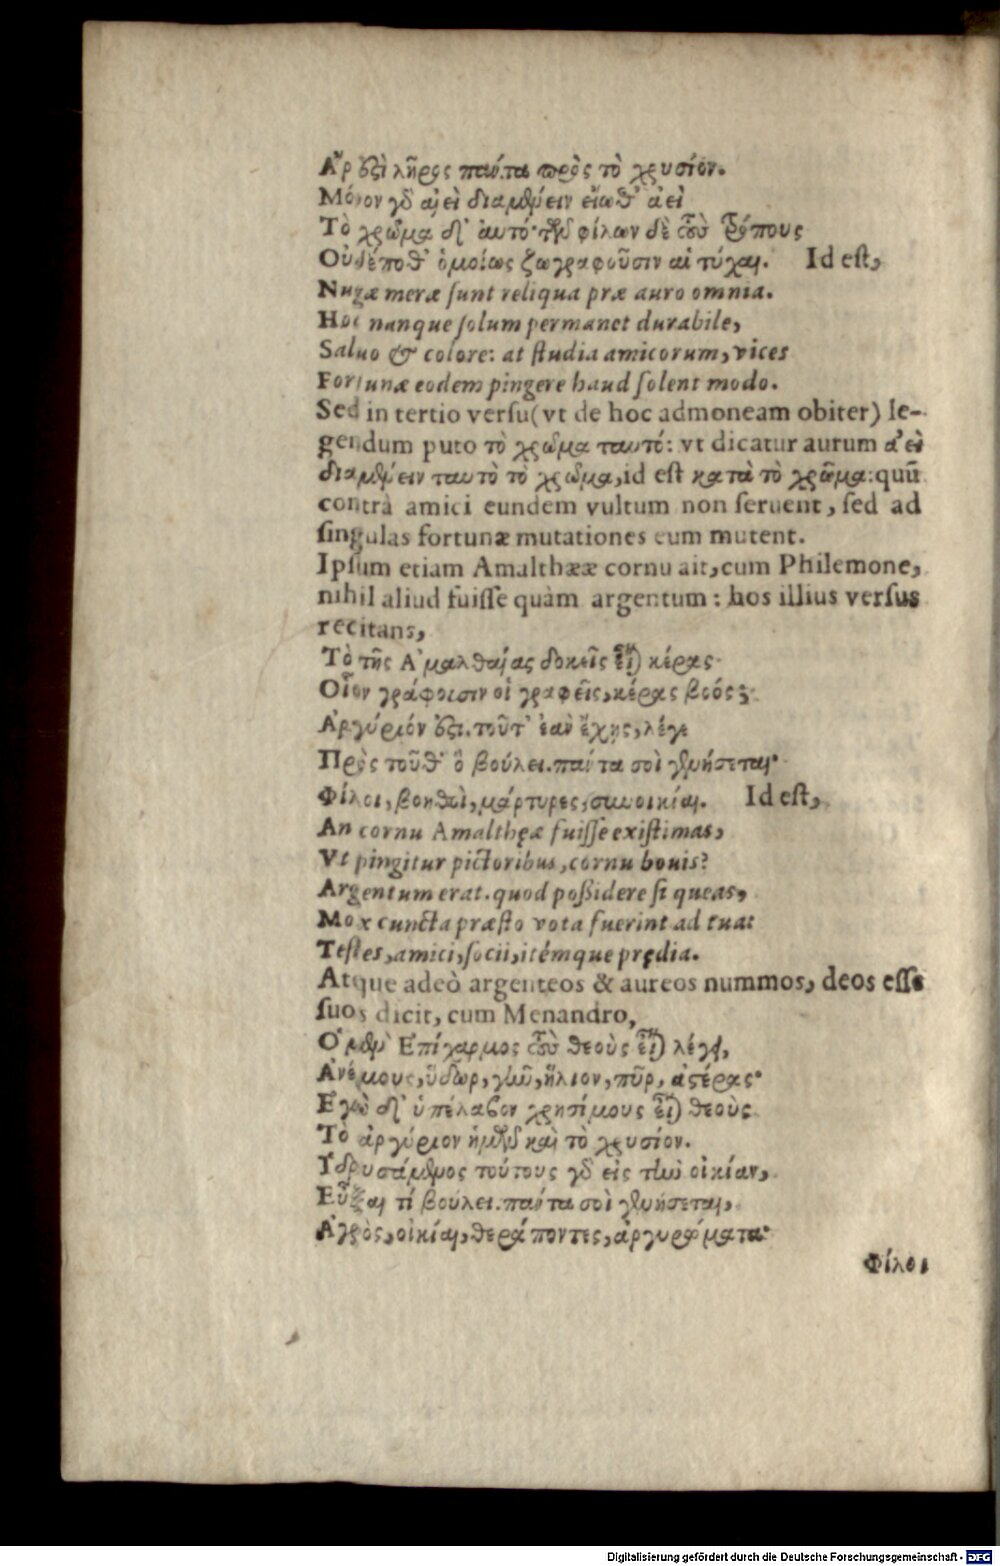 Ἆρ ἐστὶ λῆρος πάντα πρὸς τὸ χρυσίον.
Μόνον γὸ αἰεὶ διαμένειν εἴωθ' ἀεὶ
Τὸ χρῶμα δ' αὐτό· τῶν φίλων δὲ τοὺς τρόπους
Οὐδέποθ' ὁμοίως ζωγραφοῦσιν αἱ τύχαι. Id est,
Nugæ meræ sunt reliqua præ auro omnia.
Hoc nanque solum permanet durabile,
Saluo & colore: at studia amicorum, vices
Fortunæ eodem pingere haud solent modo.
Sed in tertio versu (vt de hoc admoneam obiter) le-
gendum puto τὸ χρῶμα ταυτό: vt dicatur aurum ἀεὶ
διαμένειν ταυτὸ τὸ χρῶμα, id est κατὰ τὸ χρῶμα: quũ
contrà amici eundem vultum non seruent, sed ad
singulas fortunæ mutationes eum mutent.
Ipsum etiam Amalthææ cornu ait, cum Philemone,
nihil aliud fuisse quàm argentum: hos illius versus
recitans,
Τὸ τῆς Ἀμαλθαίας δοκεῖς εἶναι κέρας
Οἷον γράφοισιν οἱ γραφεῖς, κέρας βοός;
Ἀργύριόν ἐστι. τοῦτ' ἐὰν ἔχῃς, λέγε
Πρὸς τοῦθ' ὃ βούλει. πάντα σοὶ γενήσεται·
Φίλοι, βοηθοὶ, μάρτυρες, συνοικίαι. Id est,
An cornu Amalthęæ fuisse existimas,
Vt pingitur pictoribus, cornu bouis?
Argentum erat. quod possidere si queas,
Mox cuncta præsto vota fuerint ad tua:
Testes, amici, socii, itémque prędia.
Atque adeò argenteos & aureos nummos, deos esse
suos dicit, cum Menandro,
Ὁ μὲν Ἐπίχαρμος τοὺς θεοὺς εἶναι λέγει,
Ἀνέμους, ὕδωρ, γῆν, ἥλιον, πῦρ, ἀστέρας·
Ἐγὼ δ' ὑπέλαβον χρησίμους εἶναι θεοὺς
Τὸ ἀργύριον ἡμῶν καὶ τὸ χρυσίον.
Ἱδρυσάμενος τούτους γὸ εἰς τὴν οἰκίαν,
Εὖξαι τί βούλει. πάντα σοὶ γενήσεται,
Ἀγρὸς, οἰκίαι, θεράποντες, ἀργυρώματα·
Φίλοι
Digitalisierung gefördert durch die Deutsche Forschungsgemeinschaft - DFG